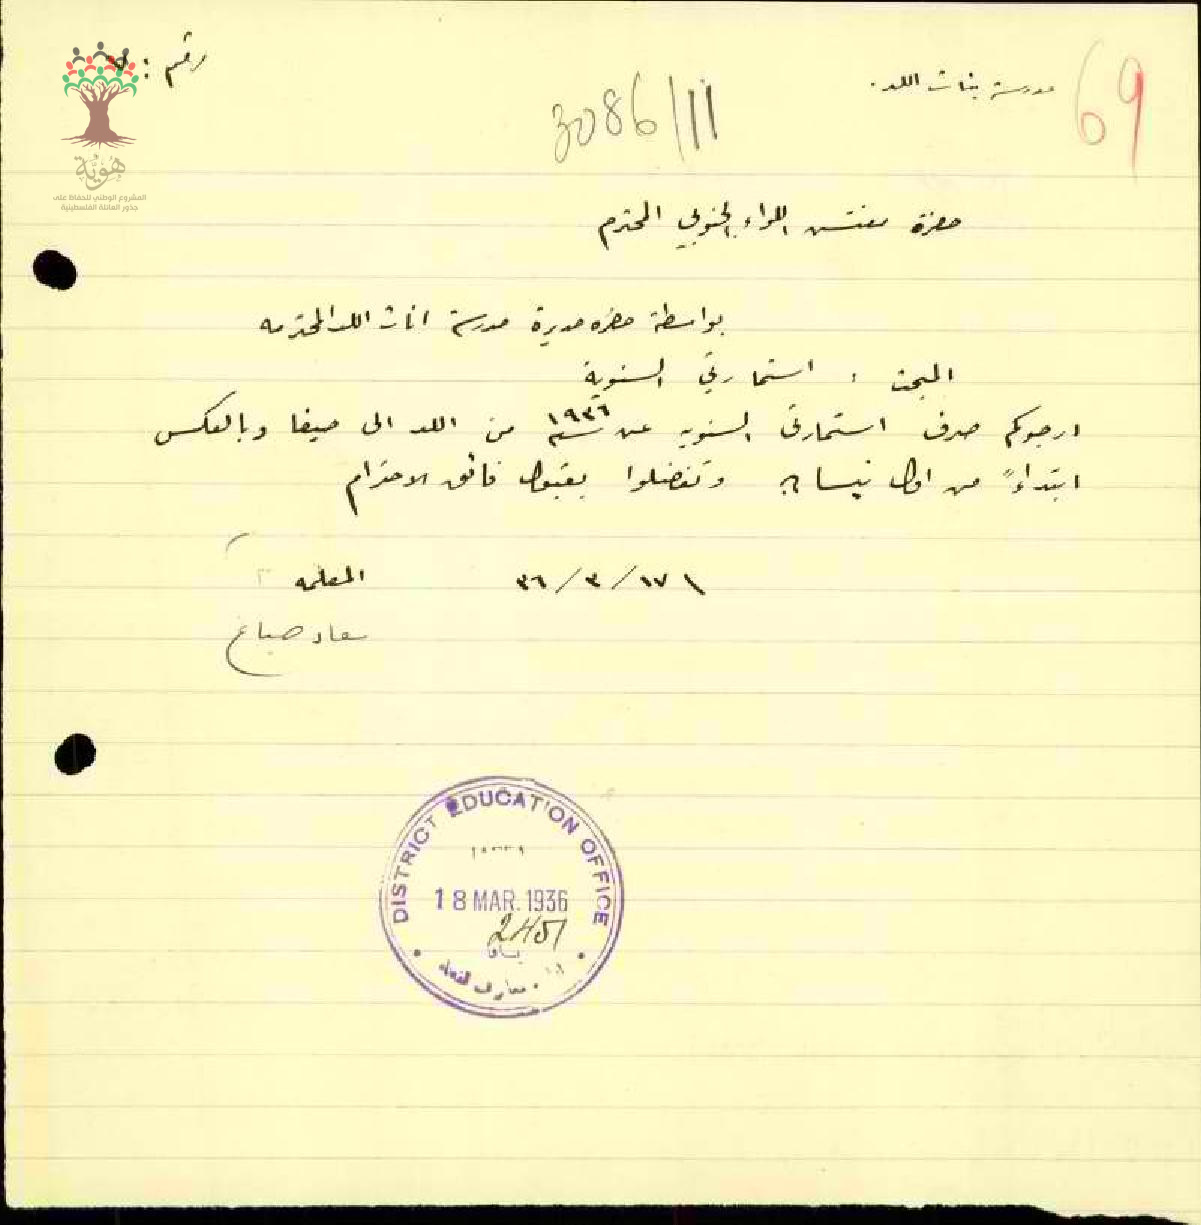 مدرسة بنات اللد.
رقم :
69
3086/11
هُوِيَّة
المشروع الوطني للحفاظ على
جذور العائلة الفلسطينية
حضرة مفتش اللواء الجنوبي المحترم
بواسطة حضرة مديرة مدرسة اناث اللد المحترمه
المبحث : استمارتي السنوية
ارجوكم صرف استمارتي السنويه عن سنة ١٩٣٦ من اللد الى حيفا وبالعكس
ابتداءً من اول نيسان وتفضلوا بقبول فائق الاحترام
١٧/٣/٣٦
المعلمه
سعاد صباغ
DISTRICT EDUCATION OFFICE
18 MAR. 1936
2451
يافا
معارف